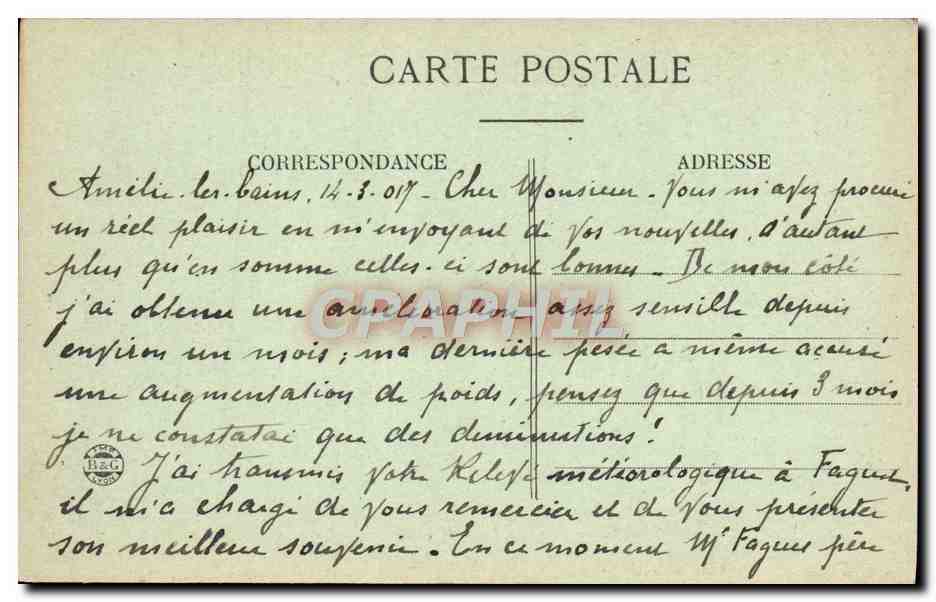 CARTE POSTALE
CORRESPONDANCE
ADRESSE
Amélie-les-bains, 14-3-017 - Cher Monsieur - Vous m'avez procuré
un réel plaisir en m'envoyant de vos nouvelles, d'autant
plus qu'en somme celles-ci sont bonnes - De mon côté
j'ai obtenu une amélioration assez sensible depuis
environ un mois ; ma dernière pesée a même accusé
une augmentation de poids, pensez que depuis 3 mois
je ne constatai que des diminutions !
J'ai transmis votre Relevé météorologique à Faguet,
il m'a chargé de vous remercier et de vous présenter
son meilleur souvenir. - En ce moment Mr Faguet père
IMP
B & G
LYON
CPAPHIL